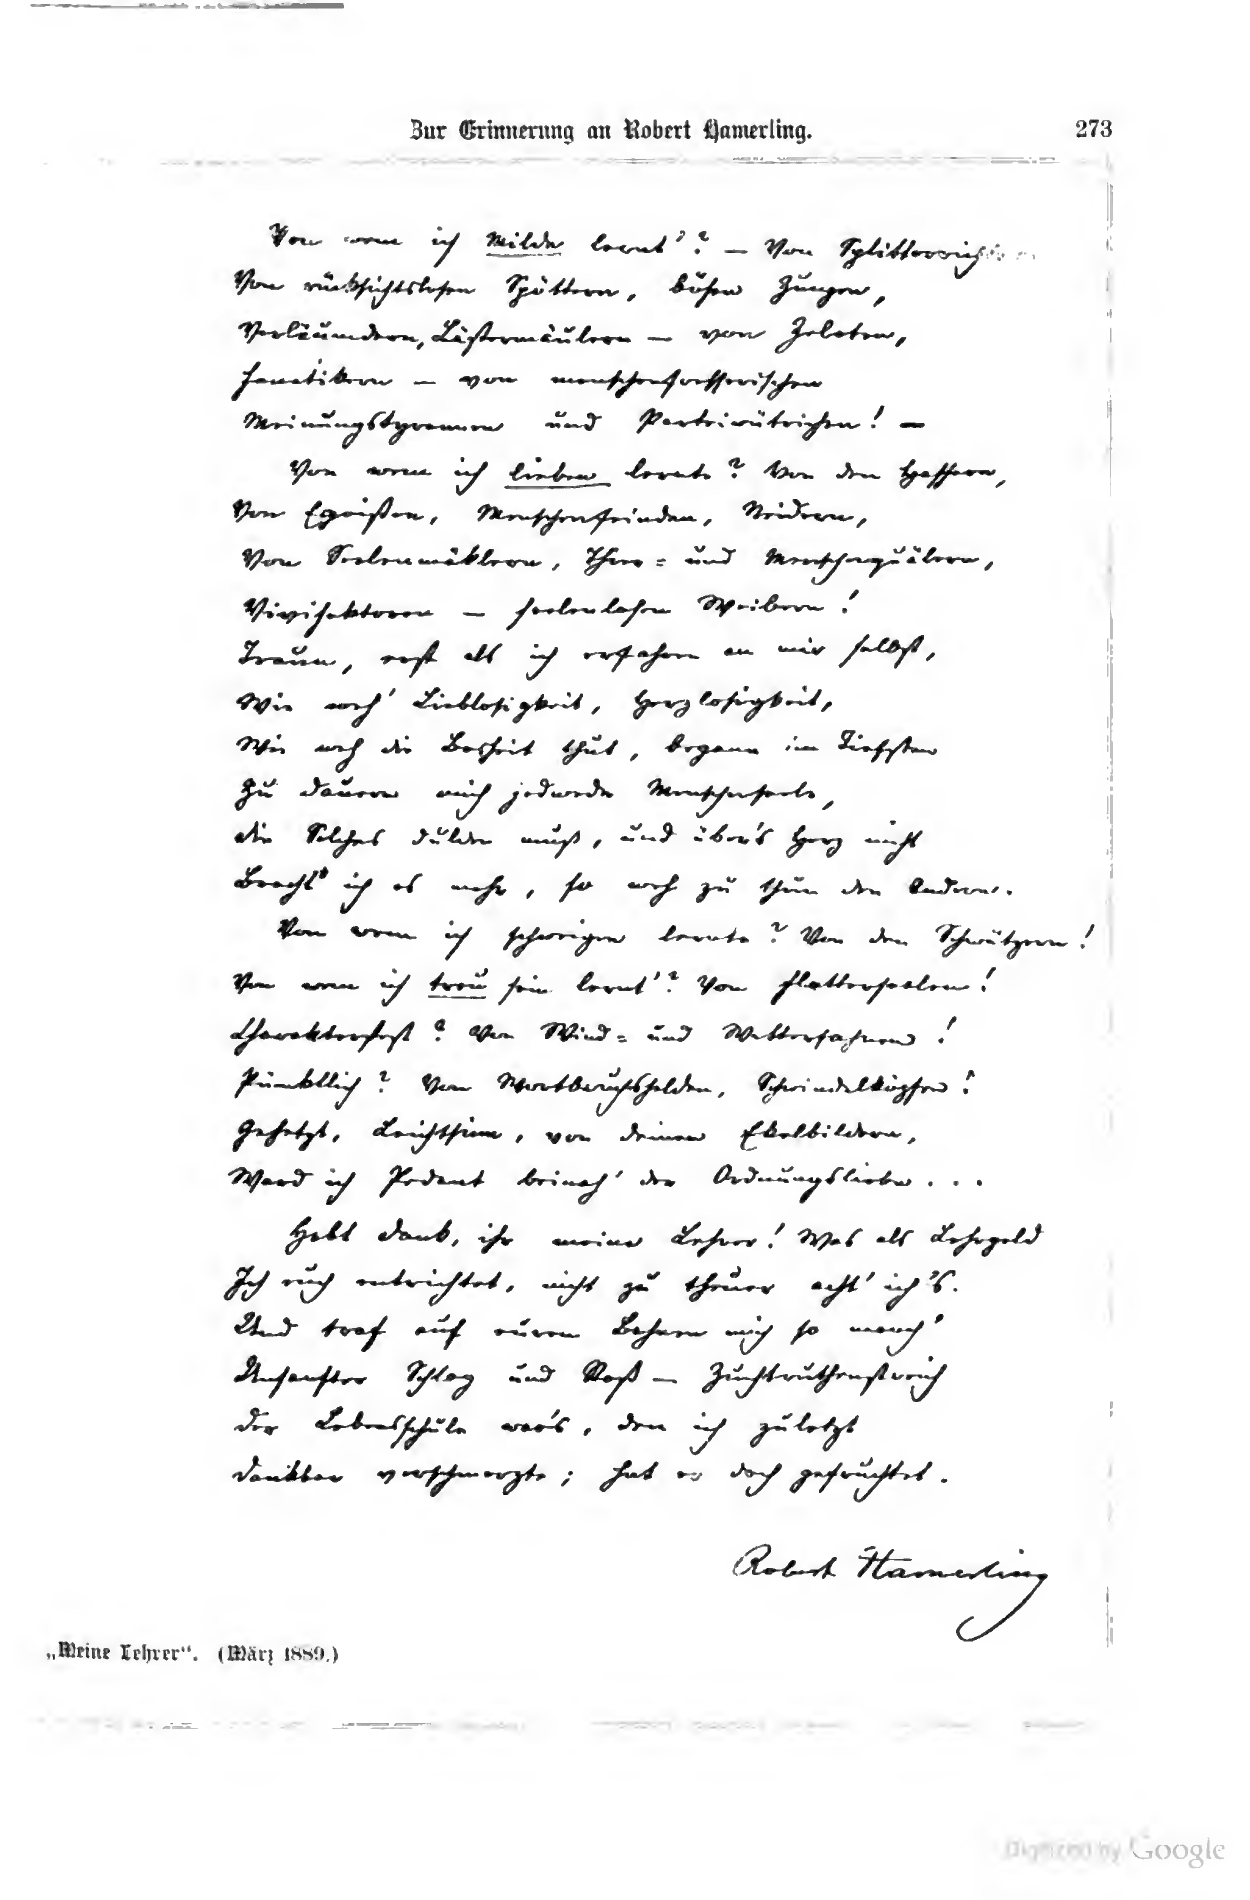 Zur Erinnerung an Robert Hamerling. 273
Von wem ich Milde lernt'? – Von Splitterrichtern
Von rücksichtslosen Spöttern, bösen Zungen,
Verläumdern, Lästermäulern – von Zeloten,
Fanatikern – von menschenfresserischen
Meinungstyrannen und Parteiwütrichen! –
Von wem ich lieben lernte? Von den Hassern,
Von Egoisten, Menschenfeinden, Neidern,
Von Seelenmäklern, Thier- und Menschenquälern,
Vivisektoren – seelenlosen Weibern!
Traun, erst als ich erfahren an mir selbst,
Wie weh' Lieblosigkeit, Herzlosigkeit,
Wie weh die Bosheit thut, begann im Tiefsten
Zu dauern mich jedwede Menschenseele,
die Solches dulden muß, und über's Herz nicht
Bracht' ich es mehr, so weh zu thun den Andern.
Von wem ich schweigen lernte? Von den Schwätzern!
Von wem ich treu sein lernt'? Von Flatterseelen!
Charakterfest? Von Wind- und Wetterfahnen!
Pünktlich? Von Wortbruchshelden, Schwindelköpfen!
Gesetzt, Leichtsinn, von deinen Ekelbildern,
Ward ich Pedant beinah' der Ordnungsliebe...
Habt Dank, ihr meine Lehrer! Was als Lehrgeld
Ich euch entrichtet, nicht zu theuer acht' ich's.
Und traf auf euren Bahnen mich so manch'
Unsanfter Schlag und Stoß – Zuchtruthenstreich
der Lebensschule war's, den ich zuletzt
dankbar verschmerzte; hat er doch gefruchtet.
Robert Hamerling
„Meine Lehrer“. (März 1889.)
Digitized by Google